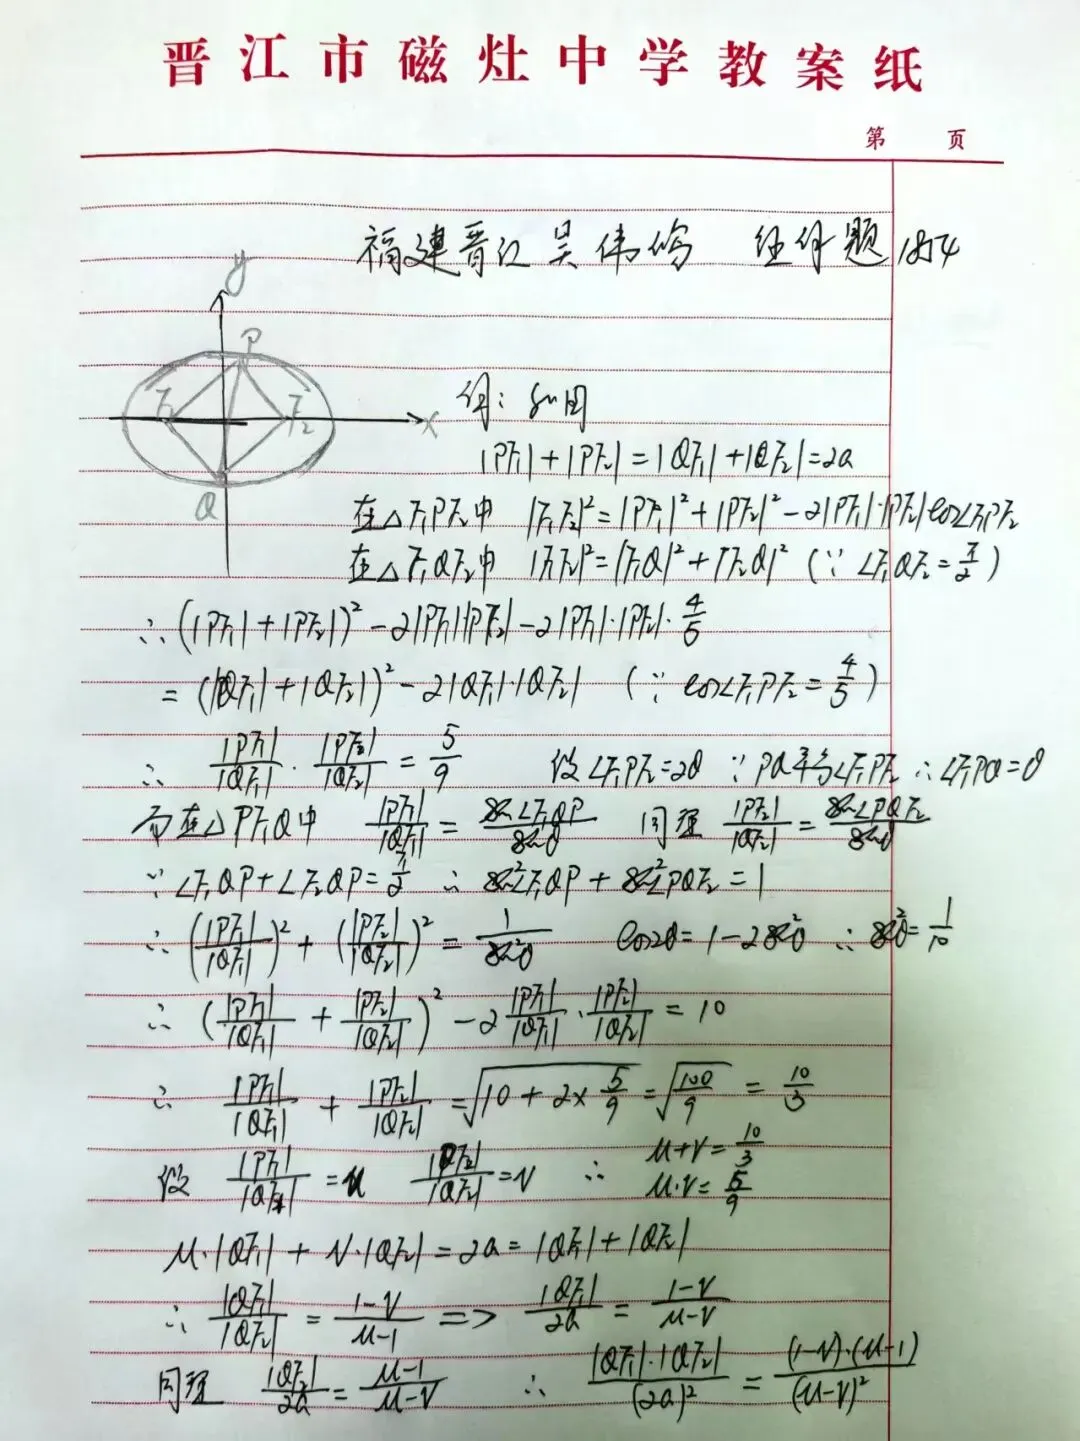 晋江市磁灶中学教案纸
第 页
福建晋江吴伟 任务题1854
y
P
F₁ F₂ x
Q
解：如图
|PF₁|+|PF₂|=|QF₁|+|QF₂|=2a
在△F₁PF₂中 |F₁F₂|²=|PF₁|²+|PF₂|²-2|PF₁|·|PF₂|cos∠F₁PF₂
在△F₁QF₂中 |F₁F₂|²=|F₁Q|²+|F₂Q|² (∵ ∠F₁QF₂=π/2)
∴ (|PF₁|+|PF₂|)²-2|PF₁||PF₂|-2|PF₁|·|PF₂|·4/5
= (|QF₁|+|QF₂|)²-2|QF₁|·|QF₂| (∵ cos∠F₁PF₂=4/5)
∴ |PF₁|/|QF₁| · |PF₂|/|QF₂| = 5/9 设∠F₁PF₂=2θ ∵ PQ平分∠F₁PF₂ ∴ ∠F₁PQ=θ
而在△PF₁Q中 |PF₁|/|QF₁| = sin∠F₁QP/sinθ 同理 |PF₂|/|QF₂| = sin∠PQF₂/sinθ
∵ ∠F₁QP+∠F₂QP=π/2 ∴ sin²∠F₁QP+sin²∠PQF₂=1
∴ (|PF₁|/|QF₁|)²+(|PF₂|/|QF₂|)²=1/sin²θ cos2θ=1-2sin²θ ∴ sin²θ=1/10
∴ (|PF₁|/|QF₁| + |PF₂|/|QF₂|)² - 2 |PF₁|/|QF₁| · |PF₂|/|QF₂| = 10
∴ |PF₁|/|QF₁| + |PF₂|/|QF₂| = √(10+2×5/9) = √(100/9) = 10/3
设 |PF₁|/|QF₁| = u |PF₂|/|QF₂| = v ∴ u+v=10/3
u·v=5/9
u·|QF₁|+v·|QF₂|=2a=|QF₁|+|QF₂|
∴ |QF₁|/|QF₂| = (1-v)/(u-1) => |QF₁|/2a = (1-v)/(u-v)
同理 |QF₂|/2a = (u-1)/(u-v) ∴ |QF₁|·|QF₂|/(2a)² = (1-v)·(u-1)/(u-v)²